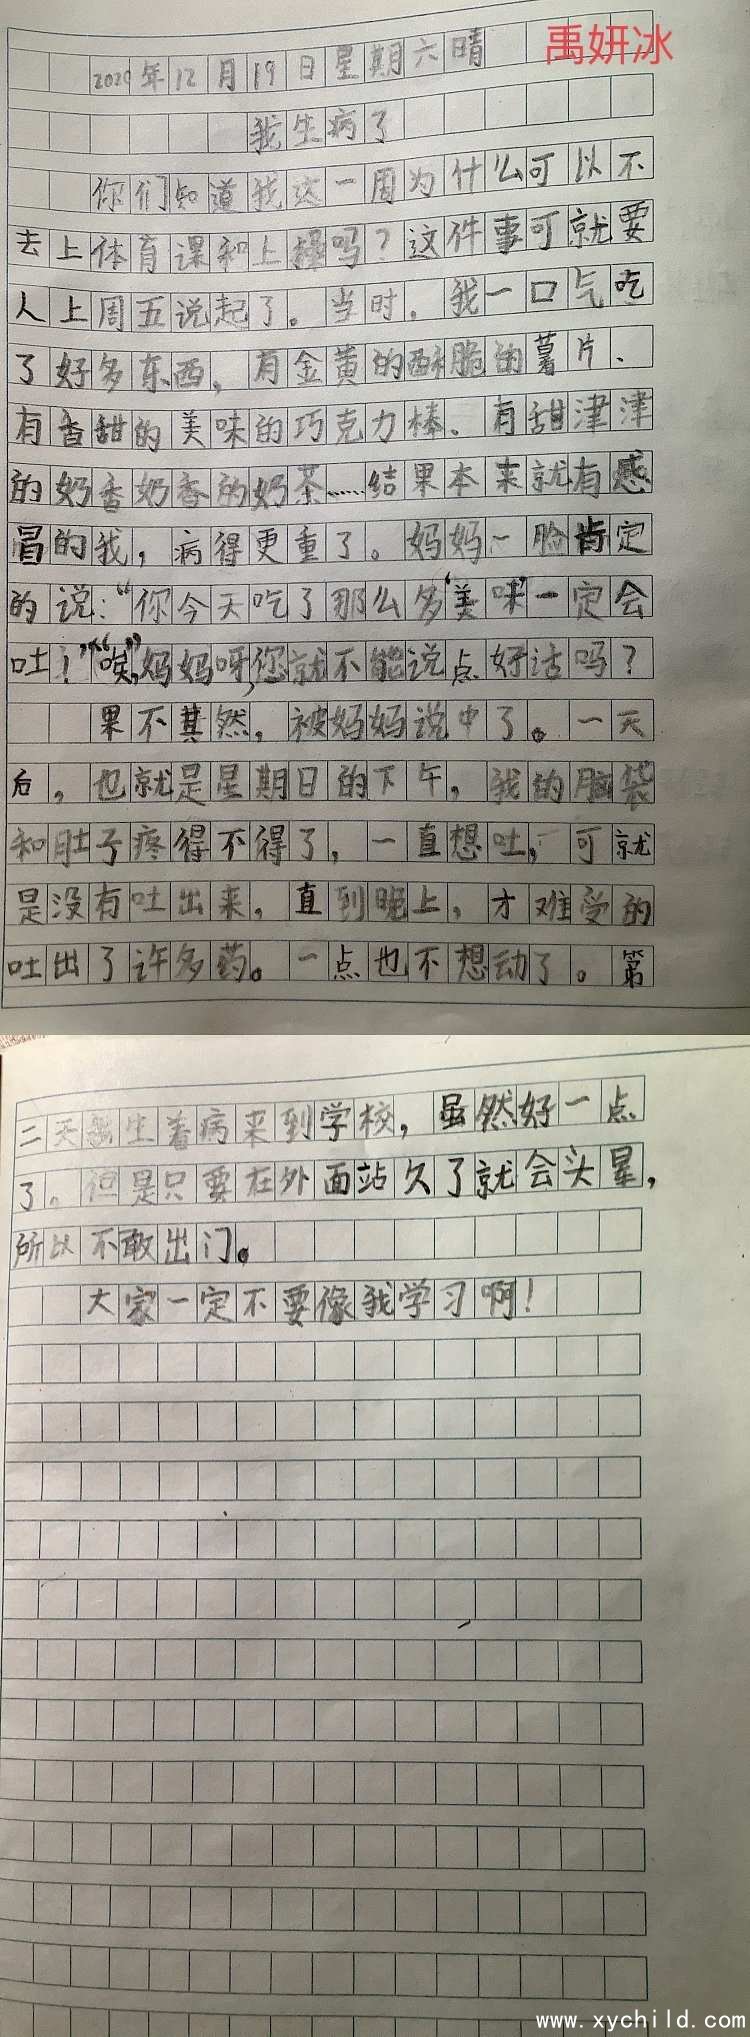 2020年12月19日星期六晴
禹妍冰
我生病了
你们知道我这一周为什么可以不
去上体育课和上操吗？这件事可就要
人上周五说起了。当时，我一口气吃
了好多东西，有金黄的酥脆的薯片、
有香甜的美味的巧克力棒、有甜津津
的奶香奶香的奶茶……结果本来就有感
冒的我，病得更重了。妈妈一脸肯定
的说：“你今天吃了那么多‘美味’一定会
吐！”“唉，”妈妈呀，您就不能说点好话吗？
果不其然，被妈妈说中了。一天
后，也就是星期日的下午，我的脑袋
和肚子疼得不得了，一直想吐，可就
是没有吐出来，直到晚上，才难受的
吐出了许多药。一点也不想动了。第
二天我生着病来到学校，虽然好一点
了。但是只要在外面站久了就会头晕，
所以不敢出门。
大家一定不要像我学习啊！
www.xychild.com